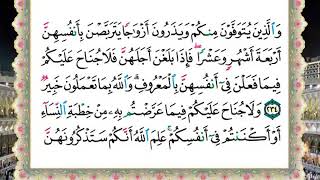 وَٱلَّذِينَ يُتَوَفَّوْنَ مِنكُمْ وَيَذَرُونَ أَزْوَٰجًا يَتَرَبَّصْنَ بِأَنفُسِهِنَّ
أَرْبَعَةَ أَشْهُرٍ وَعَشْرًا ۖ فَإِذَا بَلَغْنَ أَجَلَهُنَّ فَلَا جُنَاحَ عَلَيْكُمْ
فِيمَا فَعَلْنَ فِىٓ أَنفُسِهِنَّ بِٱلْمَعْرُوفِ ۗ وَٱللَّهُ بِمَا تَعْمَلُونَ خَبِيرٌ
٢٣٤ وَلَا جُنَاحَ عَلَيْكُمْ فِيمَا عَرَّضْتُم بِهِۦ مِنْ خِطْبَةِ ٱلنِّسَآءِ
أَوْ أَكْنَنتُمْ فِىٓ أَنفُسِكُمْ ۚ عَلِمَ ٱللَّهُ أَنَّكُمْ سَتَذْكُرُونَهُنَّ